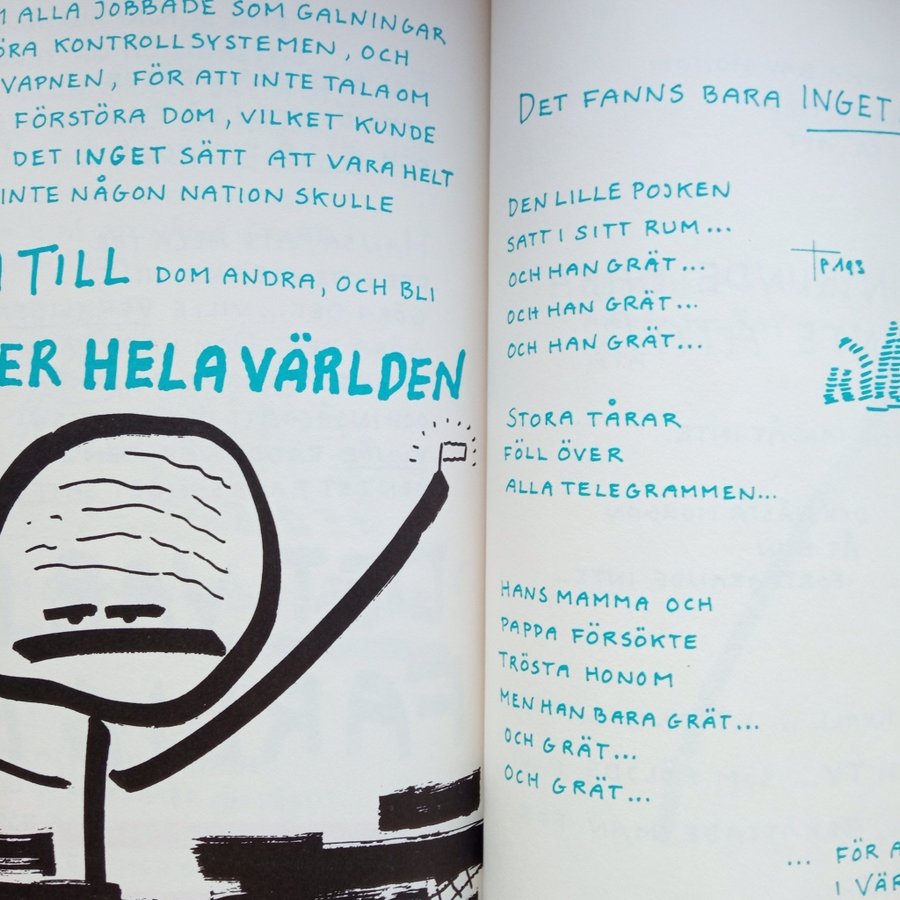 ALLA JOBBADE SOM GALNINGAR
KONTROLLSYSTEMEN, OCH
VAPNEN, FÖR ATT INTE TALA OM
FÖRSTÖRA DOM, VILKET KUNDE
DET INGET SÄTT ATT VARA HELT
INTE NÅGON NATION SKULLE
TILL DOM ANDRA, OCH BLI
HELA VÄRLDEN
DET FANNS BARA INGET
DEN LILLE POJKEN
SATT I SITT RUM...
OCH HAN GRÄT...
OCH HAN GRÄT...
OCH HAN GRÄT...
P 193
STORA TÅRAR
FÖLL ÖVER
ALLA TELEGRAMMEN...
HANS MAMMA OCH
PAPPA FÖRSÖKTE
TRÖSTA HONOM
MEN HAN BARA GRÄT...
OCH GRÄT...
OCH GRÄT...
... FÖR
I